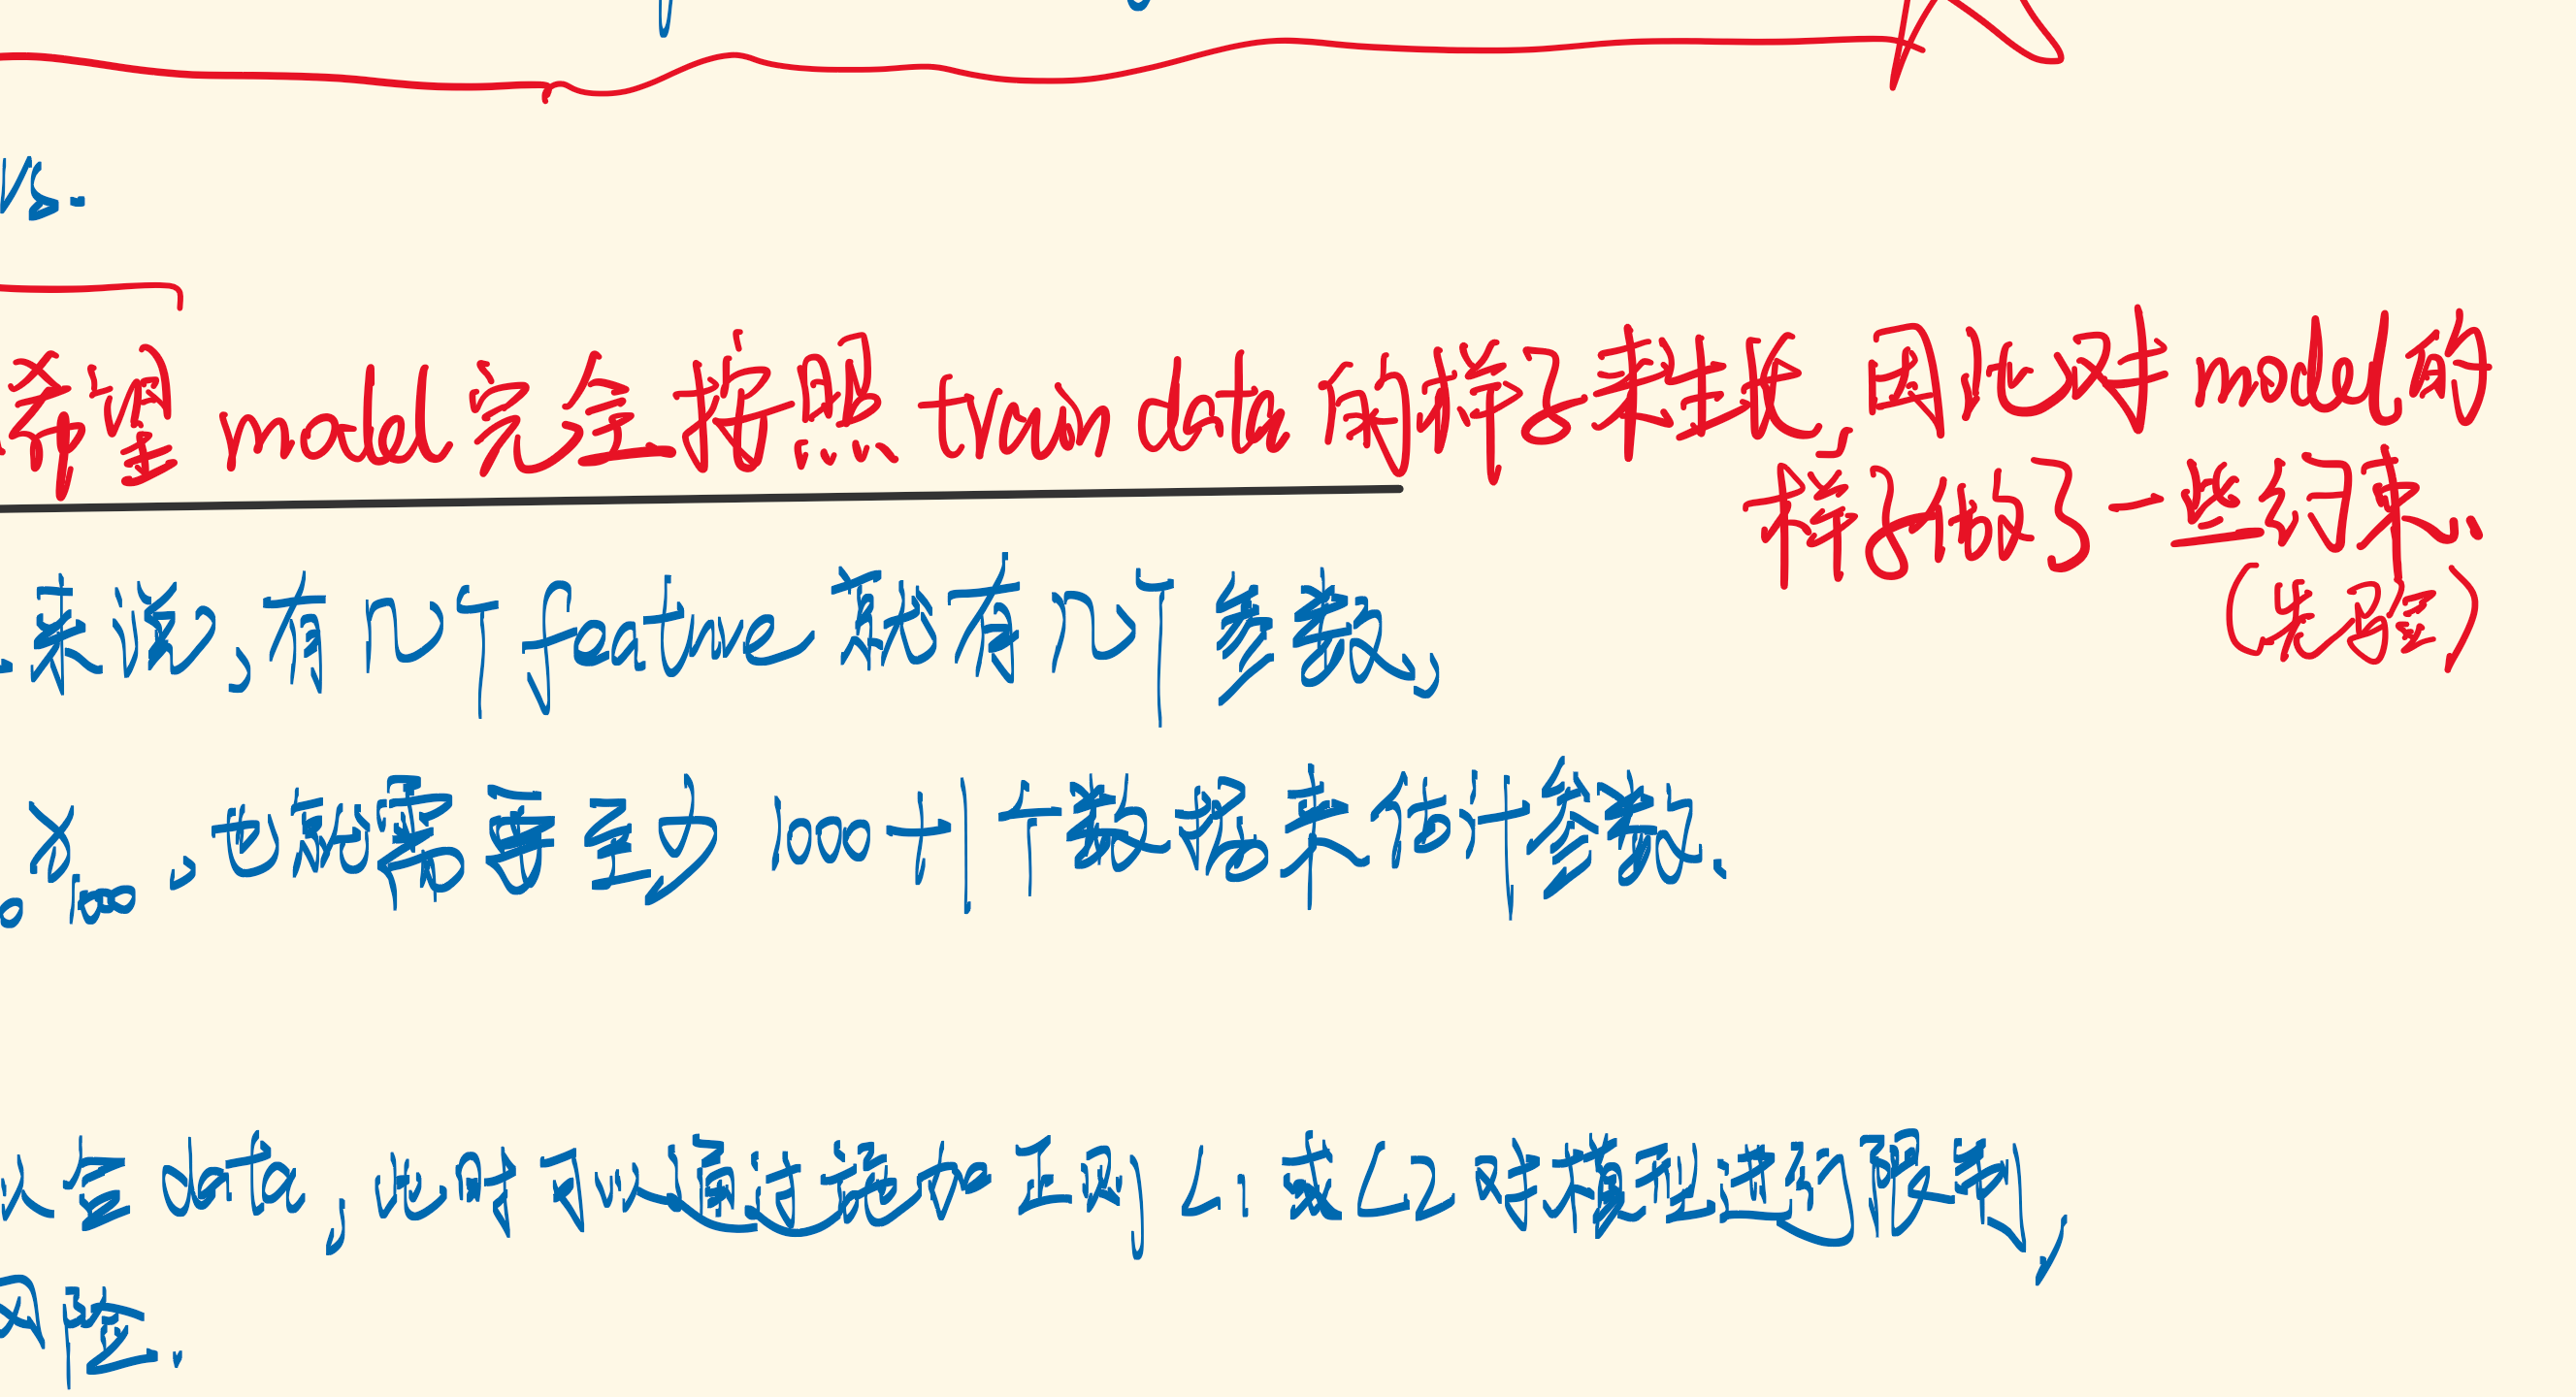 vs.
希望 model 完全按照 train data 的样子来生长, 因此对 model 的
样子做了一些约束..
(先验)
来说, 有几个 feature 就有几个参数,
X1000, 也就需要至少 1000+1个数据来估计参数.
合 data, 此时可以通过施加正则 L1 或 L2 对模型进行限制,
风险.